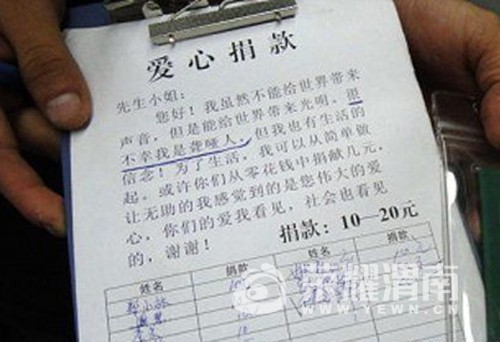 爱心捐款
先生小姐:
您好!我虽然不能给世界带来
声音,但是能给世界带来光明,很
不幸我是聋哑人,但我也有生活的
信念!为了生活,我可以从简单做
起,或许你们从零花钱中捐献几元,
让无助的我感觉到的是您伟大的爱
心,你们的爱我看见,社会也看见
的,谢谢!
捐款:10—20元
姓名 捐款 姓名 捐款
荣耀渭南
WWW.YEWN.CN